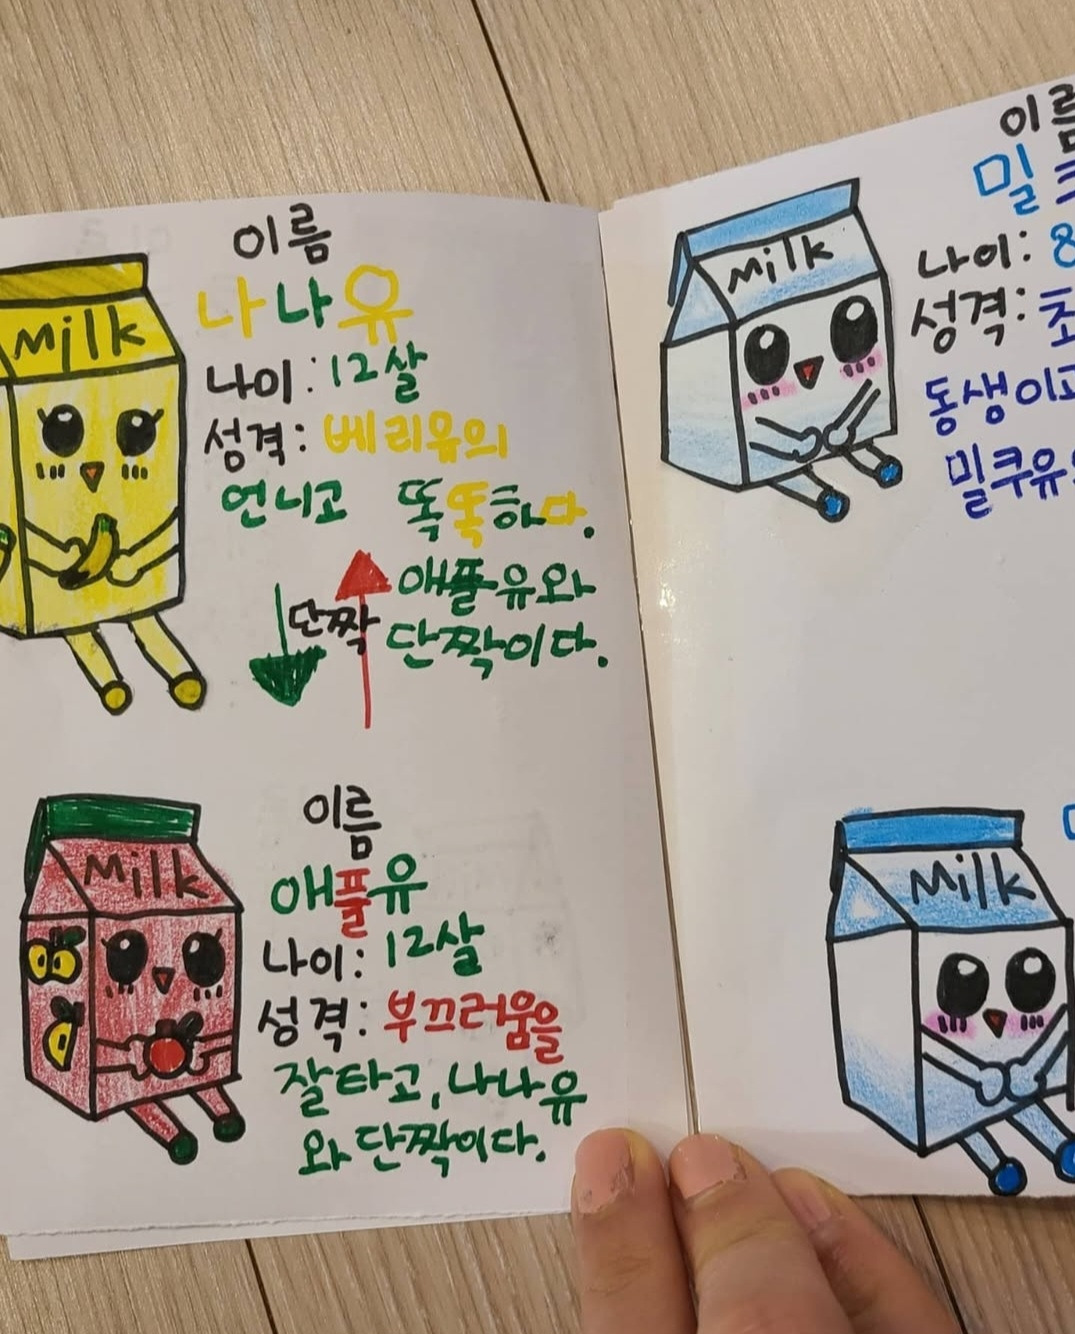 Milk
이름
나나유
나이: 12살
성격: 베리유의
언니고 똑똑하다.
단짝
애플유와
단짝이다.
Milk
이름
애플유
나이: 12살
성격: 부끄러움을
잘타고, 나나유
와 단짝이다.
Milk
이름
밀
나이: 8
성격:
동생이고
밀쿠유
Milk